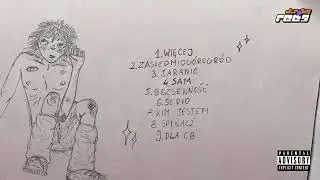 1.WIĘCEJ
2.ZASIEDMIOGÓROGRÓD
3.JARANIE
4.SAM
5.BEZSENNOŚĆ
6.SERIO
7.KIM JESTEM
8.SPINACZ
9.DLA CB
PARENTAL
ADVISORY
EXPLICIT CONTENT